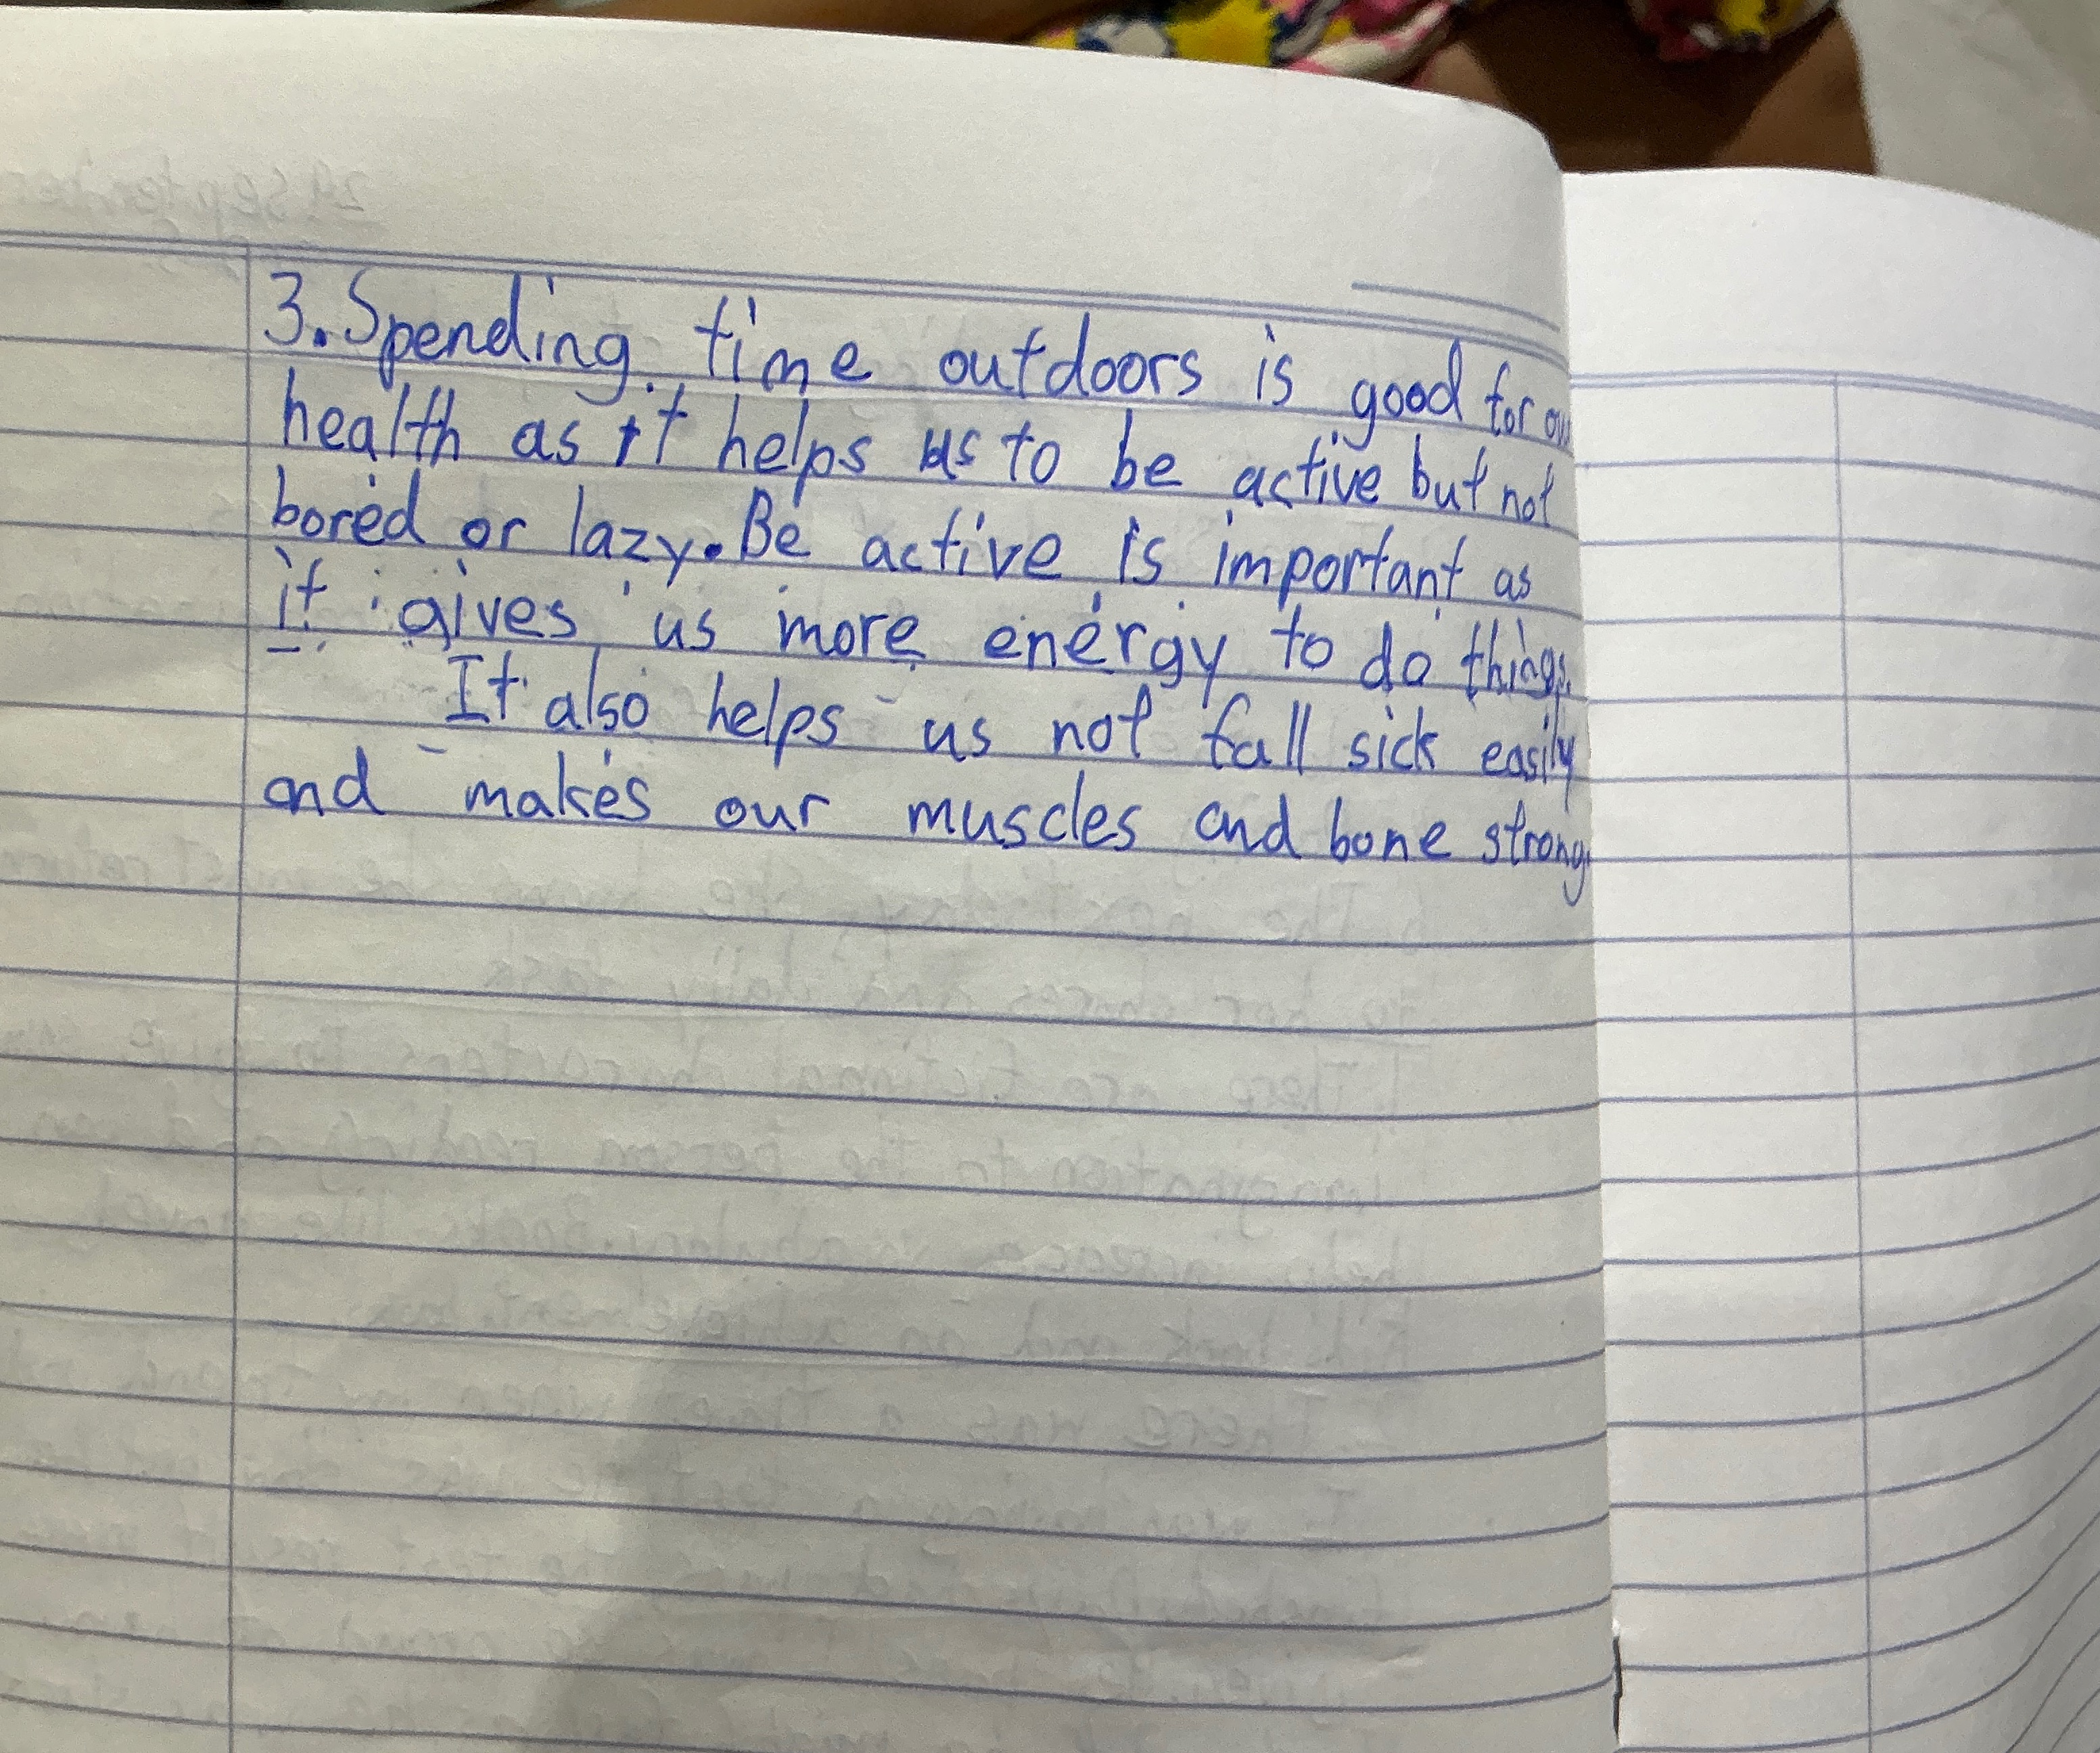 3. Spending time outdoors is good for our
health as it helps us to be active but not
bored or lazy. Be active is important as
it gives us more energy to do things.
It also helps us not fall sick easily
and makes our muscles and bone strong.